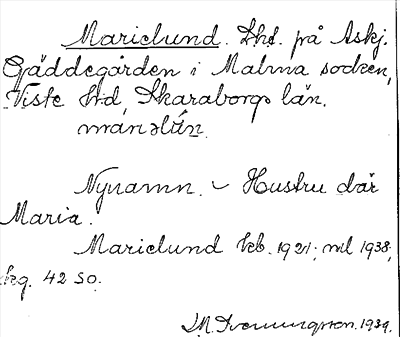 Marielund. Lht. på Askj.
Gäddegården i Malma socken,
Viste hd, Skaraborgs län.
marielún.
Nynamn. – Hustru där
Maria.
Marielund kb. 1921; ml 1938;
kg. 42 SO.
1939.